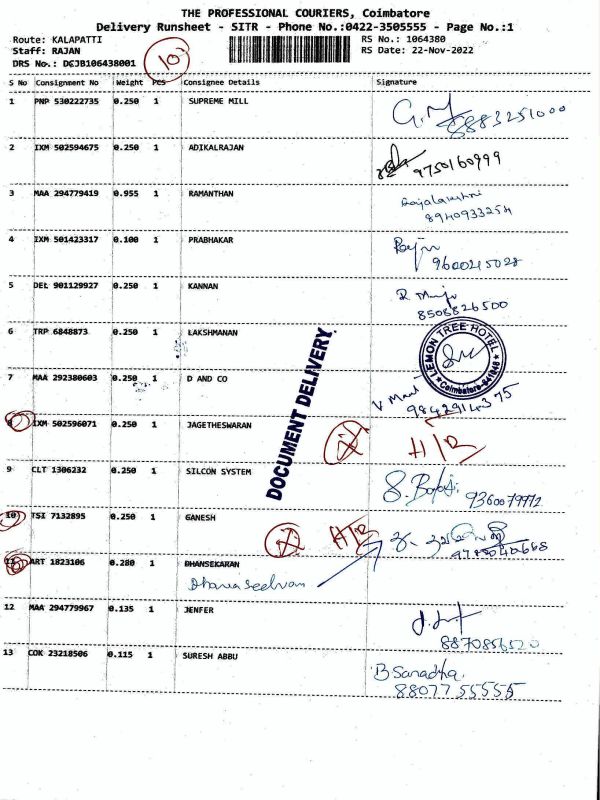 THE PROFESSIONAL COURIERS, Coimbatore
Delivery Runsheet - SITR - Phone No.:0422-3505555 - Page No.:1
Route: KALAPATTI
RS No.: 1064380
Staff: RAJAN
RS Date: 22-Nov-2022
DRS No.: DCJB106438001
10
S No Consignment No Weight PCS Consignee Details Signature
1 PNP 530222735 0.250 1 SUPREME MILL
8883251000
2 IXM 502594675 0.250 1 ADIKALRAJAN
9750160999
3 MAA 294779419 0.955 1 RAMANTHAN Rajalakshmi
8940933254
4 IXM 501423317 0.100 1 PRABHAKAR
9600245028
5 DEL 901129927 0.250 1 KANNAN
8508826500
6 TRP 6848873 0.250 1 LAKSHMANAN
LEMON TREE HOTEL
Coimbatore-641048
7 MAA 292380603 0.250 1 D AND CO
9842914375
8 IXM 502596071 0.250 1 JAGETHESWARAN
DOCUMENT DELIVERY
9 CLT 1306232 0.250 1 SILCON SYSTEM
9360079972
10 TSI 7132895 0.250 1 GANESH
11 ART 1823106 0.280 1 DHANSEKARAN
12 MAA 294779967 0.135 1 JENFER
8870856520
13 COK 23218506 0.115 1 SURESH ABBU B Saradha.
88077 55555